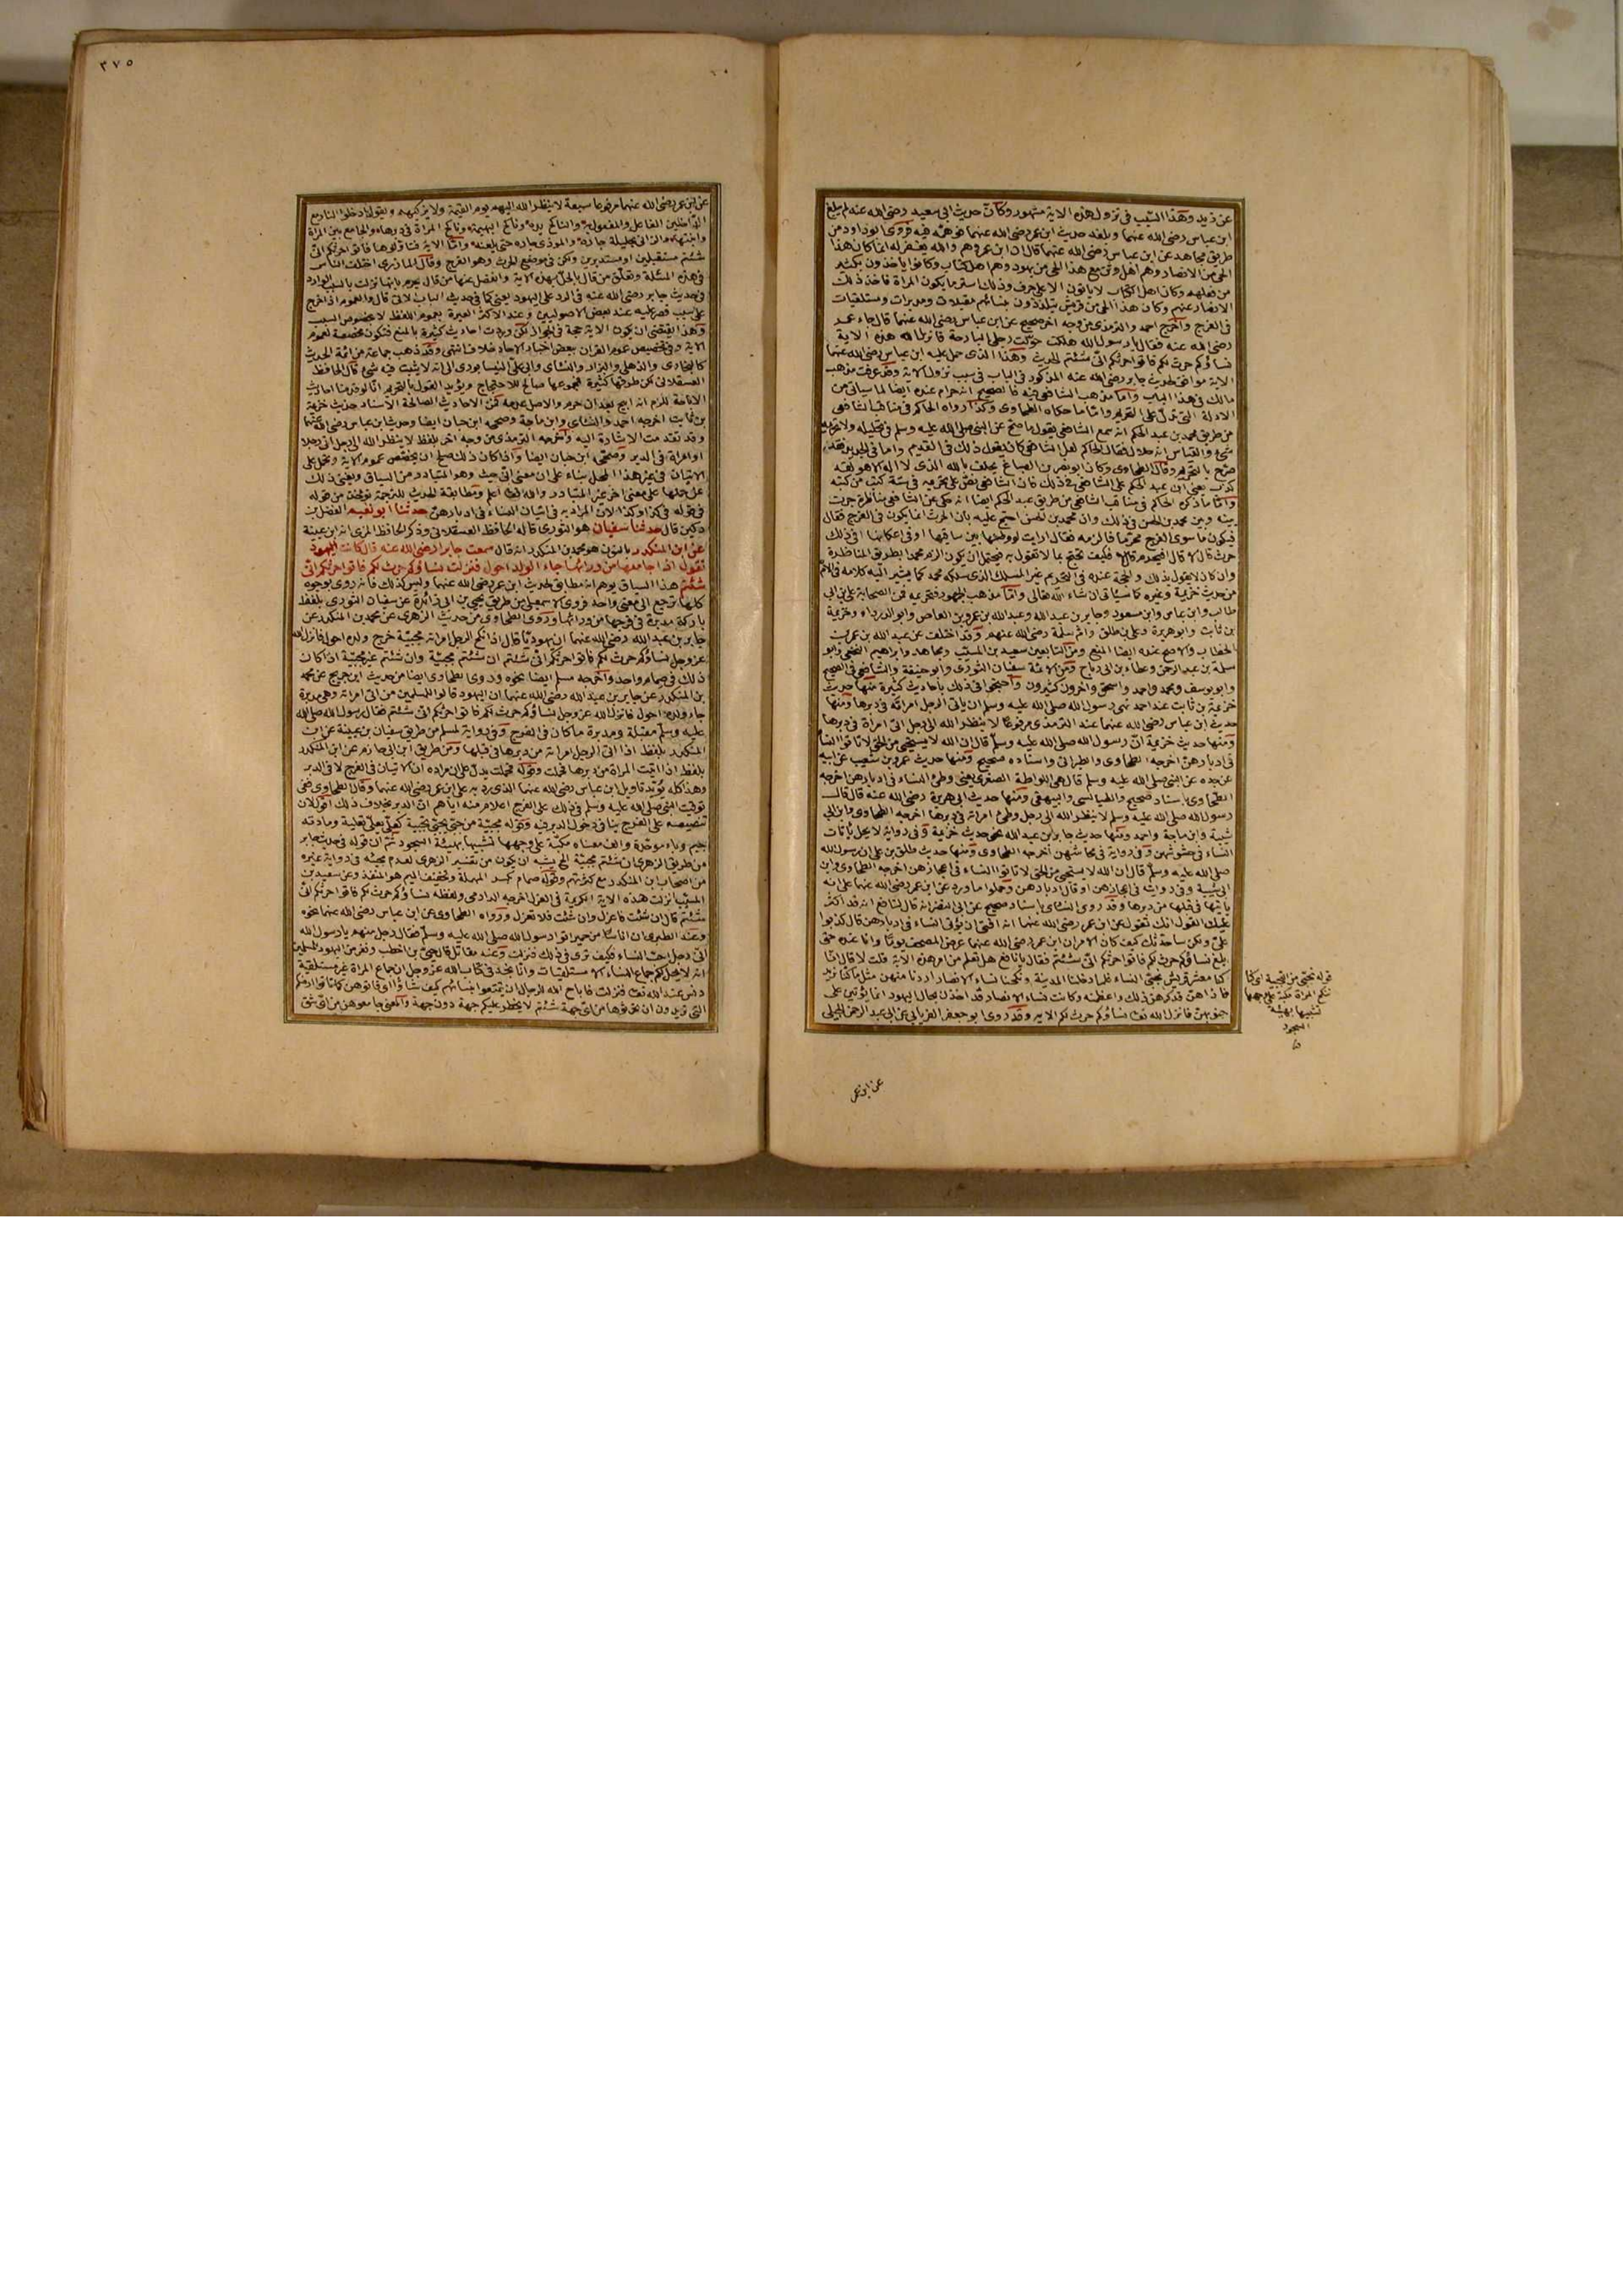 عن زيد وهذا السبب في نزول هذه الاية مشهور وكان حديث ابي سعيد رضي الله عنه لم يبلغ
ابن عباس رضي الله عنهما وبلغه حديث ابن عمر رضي الله عنهما فوهمه فيه فروى ابو داود من
طريق مجاهد عن ابن عباس رضي الله عنهما قال ان ابن عمر وهم والله يغفر له انما كان هذا
الحي من الانصار وهم اهل وثن مع هذا الحي من يهود وهم اهل كتاب وكانوا ياخذون بكثير
من فعلهم وكان اهل الكتاب لا ياتون الا على حرف وذلك استر ما يكون المراة فاخذ ذلك
الانصار عنهم وكان هذا الحي من قريش يتلذذون بنسائهم مقبلات ومدبرات ومستلقيات
في الفرج واخرج احمد والترمذي من وجه اخر صحيح عن ابن عباس رضي الله عنهما قال جاء عمر
رضي الله عنه فقال يا رسول الله هلكت حولت رحلي البارحة فانزل الله هذه الاية
نساؤكم حرث لكم فاتوا حرثكم انى شئتم الحديث وهذا الذي حمل عليه ابن عباس رضي الله عنهما
الاية موافق لحديث جابر رضي الله عنه المذكور في الباب في سبب نزول الاية وقد عرفت مذهب
مالك في هذا الباب واما مذهب الشافعي فيه فالصحيح انه حرام عنده ايضا لما سياتي من
الادلة التي تدل على التحريم واما ما حكاه الطحاوي وكذا رواه الحاكم في مناقب الشافعي
من طريق محمد بن عبد الحكم انه سمع الشافعي يقول ما صح عن النبي صلى الله عليه وسلم في تحليله ولا تحريمه
شيء والقياس انه حلال فقال الحاكم لعل الشافعي كان يقول ذلك في القديم واما في الجديد فقد
صرح بالتحريم وقال الطحاوي وكان ابو نصر بن الصباغ يحلف بالله الذي لا اله الا هو لقد
كذب يعني ابن عبد الحكم على الشافعي في ذلك فان الشافعي نص على تحريمه في ستة كتب من كتبه
واما ما ذكره الحاكم في مناقب الشافعي من طريق عبد الحكم ايضا انه حكى عن الشافعي مناظرة جرت
بينه وبين محمد بن الحسن في ذلك وان محمد بن الحسن احتج عليه بان الحرث انما يكون في الفرج فقال
فيكون ما سوى الفرج محرما فالزمه فقال ارايت لو وطئها بين ساقيها او في اعكانها افي ذلك
حرث قال لا قال افيحرم قال لا فكيف تحتج بما لا تقول به فيحتمل ان يكون الزم محمدا بطريق المناظرة
وان كان لا يقول بذلك والحجة عنده في التحريم غير المسلك الذي سلكه محمد كما يشير اليه كلامه في الام
من حديث خزيمة وغيره كما سياتي ان شاء الله تعالى واما مذهب الجمهور فتحريمه فمن الصحابة علي بن ابي
طالب وابن عباس وابن مسعود وجابر بن عبد الله وعبد الله بن عمرو بن العاص وابو الدرداء وخزيمة
بن ثابت وابو هريرة وعلي بن طلق وام سلمة رضي الله عنهم وقد اختلف عن عبد الله بن عمر بن
الخطاب والاصح عنده ايضا المنع ومن التابعين سعيد بن المسيب ومجاهد وابراهيم النخعي وابو
سلمة بن عبد الرحمن وعطاء بن ابي رباح ومن الائمة سفيان الثوري وابو حنيفة والشافعي في الصحيح
وابو يوسف ومحمد واحمد واسحق واخرون كثيرون واحتجوا في ذلك باحاديث كثيرة منها حديث
خزيمة بن ثابت عند احمد نهى رسول الله صلى الله عليه وسلم ان ياتي الرجل امراته في دبرها ومنها
حديث ابن عباس رضي الله عنهما عند الترمذي مرفوعا لا ينظر الله الى رجل اتى امراة في دبرها
ومنها حديث خزيمة ان رسول الله صلى الله عليه وسلم قال ان الله لا يستحيي من الحق لا تاتوا النساء
في ادبارهن اخرجه الطحاوي والطبراني واسناده صحيح ومنها حديث عمرو بن شعيب عن ابيه
عن جده عن النبي صلى الله عليه وسلم قال هي اللواطة الصغرى يعني وطئ النساء في ادبارهن اخرجه
الطحاوي باسناد صحيح والطيالسي والبيهقي ومنها حديث ابي هريرة رضي الله عنه قال قال
رسول الله صلى الله عليه وسلم لا ينظر الله الى رجل وطئ امراته في دبرها اخرجه الطحاوي وابن ابي
شيبة وابن ماجة واحمد ومنها حديث جابر بن عبد الله نحو حديث خزيمة وفي رواية لا يحل ياتات
النساء في حشوشهن وفي رواية في محاشهن اخرجه الطحاوي ومنها حديث طلق بن علي ان رسول الله
صلى الله عليه وسلم قال ان الله لا يستحيي من الحق لا تاتوا النساء في اعجازهن اخرجه الطحاوي وابن
ابي شيبة وفي رواية في اعجازهن او قال ادبارهن وحملوا ما ورد عن ابن عمر رضي الله عنهما على انه
ياتيها في قبلها من دبرها وقد روى النسائي باسناد صحيح عن ابي النضر انه قال لنافع انه قد اكثر
عليك القول انك تقول عن ابن عمر رضي الله عنهما انه افتى ان يؤتى النساء في ادبارهن قال كذبوا
علي ولكن ساحدثك كيف كان الامر ان ابن عمر رضي الله عنهما عرض المصحف يوما وانا عنده حتى
بلغ نساؤكم حرث لكم فاتوا حرثكم انى شئتم فقال يا نافع هل تعلم من امر هذه الاية قلت لا قال انا
كنا معشر قريش نجبي النساء فلما دخلنا المدينة ونكحنا نساء الانصار اردنا منهن مثل ما كنا نريد
فاذا هن قد كرهن ذلك واعظمنه وكانت نساء الانصار قد اخذن بحال اليهود انما يؤتين على
جنوبهن فانزل الله تعالى نساؤكم حرث لكم الاية وقد روى ابو جعفر الفريابي عن ابي عبد الرحمن الحبلي
قوله نجبي من التجبية اي كنا
ننكح المراة مكبة على وجهها
تشبيها بهيئة
السجود
عن ابن عمر
٣٧٥
عن ابن عمر رضي الله عنهما مرفوعا سبعة لا ينظر الله اليهم يوم القيمة ولا يزكيهم ويقول ادخلوا النار مع
الداخلين الفاعل والمفعول به والناكح يده وناكح البهيمة وناكح المراة في دبرها والجامع بين المراة
وابنتها والزاني بحليلة جاره والموذي جاره حتى يلعنه واما الاية فتاولوها فاتوا حرثكم انى
شئتم مستقبلين او مستدبرين ولكن في موضع الحرث وهو الفرج وقال المازري اختلف الناس
في هذه المسئلة وتعلق من قال بالحل بهذه الاية وانفصل عنها من قال يحرم بانها نزلت بالسبب الوارد
في حديث جابر رضي الله عنه في الرد على اليهود يعني كما في حديث الباب الاتي قال والعموم اذا خرج
على سبب قصر عليه عند بعض الاصوليين وعند الاكثر العبرة بعموم اللفظ لا بخصوص السبب
وهذا يقتضي ان يكون الاية حجة في الجواز لكن وردت احاديث كثيرة بالمنع فتكون مخصصة لعموم
الاية وفي تخصيص عموم القران ببعض اخبار الاحاد خلاف انتهى وقد ذهب جماعة من ائمة الحديث
كالبخاري والذهلي والبزار والنسائي وابي علي النيسابوري الى انه لا يثبت فيه شيء قال الحافظ
العسقلاني لكن طرقها كثيرة فمجموعها صالح للاحتجاج ويؤيد القول بالتحريم انا لو قدمنا احاديث
الاباحة للزم انه ابيح بعد ان حرم والاصل عدمه فمن الاحاديث الصالحة الاسناد حديث خزيمة
بن ثابت اخرجه احمد والنسائي وابن ماجة وصححه ابن حبان ايضا وحديث ابن عباس رضي الله عنهما
وقد تقدمت الاشارة اليه واخرجه الترمذي من وجه اخر بلفظ لا ينظر الله الى رجل اتى رجلا
او امراة في الدبر وصححه ابن حبان ايضا واذا كان ذلك صلح ان يخصص عموم الاية ويحمل على
الاتيان في غير هذا المحل بناء على ان معنى انى حيث وهو المتبادر من السياق ويغني ذلك
عن حملها على معنى اخر غير المتبادر والله تعالى اعلم ومطابقة الحديث للترجمة تؤخذ من قوله
في قوله في كذا وكذا لان المراد به في اتيان النساء في ادبارهن حدثنا ابو نعيم الفضل بن
دكين قال حدثنا سفيان هو الثوري قاله الحافظ العسقلاني وذكر الحافظ المزي انه ابن عيينة
عن ابن المنكدر بالنون هو محمد بن المنكدر انه قال سمعت جابرا رضي الله عنه قال كانت اليهود
تقول اذا جامعها من ورائها جاء الولد احول فنزلت نساؤكم حرث لكم فاتوا حرثكم انى
شئتم هذا السياق يوهم انه مطابق لحديث ابن عمر رضي الله عنهما وليس كذلك فانه روى بوجوه
كلها ترجع الى معنى واحد فروى الاسمعيلي من طريق يحيى بن ابي زائدة عن سفيان الثوري بلفظ
باركة مدبرة في فرجها من ورائها وروى الطحاوي من حديث الزهري عن محمد بن المنكدر عن
جابر بن عبد الله رضي الله عنهما ان يهوديا قال اذا نكح الرجل امراته مجبية خرج ولده احول فانزل الله
عز وجل نساؤكم حرث لكم فاتوا حرثكم انى شئتم ان شئتم مجبية وان شئتم غير مجبية اذا كان
ذلك في صمام واحد واخرجه مسلم ايضا نحوه وروى الطحاوي ايضا من حديث ابن جريج عن محمد
بن المنكدر عن جابر بن عبد الله رضي الله عنهما ان اليهود قالوا للمسلمين من اتى امراته وهي مدبرة
جاء ولده احول فانزل الله عز وجل نساؤكم حرث لكم فاتوا حرثكم انى شئتم فقال رسول الله صلى الله
عليه وسلم مقبلة ومدبرة ما كان في الفرج وفي رواية لمسلم من طريق سفيان بن عيينة عن ابن
المنكدر بلفظ اذا اتى الرجل امراته من دبرها في قبلها ومن طريق ابن ابي حازم عن ابن المنكدر
بلفظ اذا اتيت المراة من دبرها فحملت وقوله فحملت يدل على ان مراده ان الاتيان في الفرج لا في الدبر
وهذا كله يؤيد تاويل ابن عباس رضي الله عنهما الذي رد به على ابن عمر رضي الله عنهما وقال الطحاوي ففي
توقيت النبي صلى الله عليه وسلم في ذلك على الفرج اعلام منه اياهم ان الدبر بخلاف ذلك اقول لان
تنصيصه على الفرج ينافي دخول الدبر فيه وقوله مجبية من جبى يجبي تجبية كعلى يعلي تعلية ومادته
جيم وباء موحدة والف معناه مكبة على وجهها تشبيها بهيئة السجود ثم ان قوله في حديث جابر
من طريق الزهري ان شئتم مجبية الخ يشبه ان يكون من تفسير الزهري لعدم مجيئه في رواية غيره
من اصحاب ابن المنكدر مع كثرتهم وقوله صمام بكسر المهملة وتخفيف الميم هو المنفذ وعن سعيد بن
المسيب انزلت هذه الاية الكريمة في العزل اخرجه الدارمي ولفظه نساؤكم حرث لكم فاتوا حرثكم انى
شئتم قال ان شئت فاعزل وان شئت فلا تعزل ورواه الطحاوي عن ابن عباس رضي الله عنهما نحوه
وعند الطبري ان اناسا من حمير اتوا رسول الله صلى الله عليه وسلم فقال رجل منهم يا رسول الله
اني رجل احب النساء فكيف ترى في ذلك فنزلت وعند مقاتل قال حيي بن اخطب ونفر من اليهود للمسلمين
انه لا يحل لكم جماع النساء الا مستلقيات وانا نجد في كتاب الله عز وجل ان جماع المراة غير مستلقية
دنس عند الله تعالى فنزلت فاباح الله للرجال ان يتمتعوا بنسائهم كيف شاؤا اي فاتوهن كما تاتوا ارضكم
التي تريدون ان تحرثوها من اي جهة شئتم لا يحظر عليكم جهة دون جهة والمعنى جامعوهن من اي شق